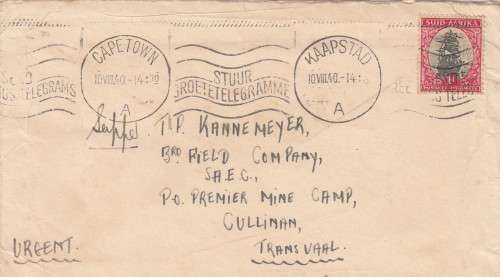 SUID-AFRIKA
CAPETOWN
10.VIII.40.-14:
A
STUUR
GROETETELEGRAMME
KAAPSTAD
10.VIII.40.-14:
A
TELEGRAMS
KANNEMEYER,
3RD FIELD COMPANY,
S.A.E.C.,
P.O. PREMIER MINE CAMP,
CULLINAN,
TRANSVAAL.
URGENT.